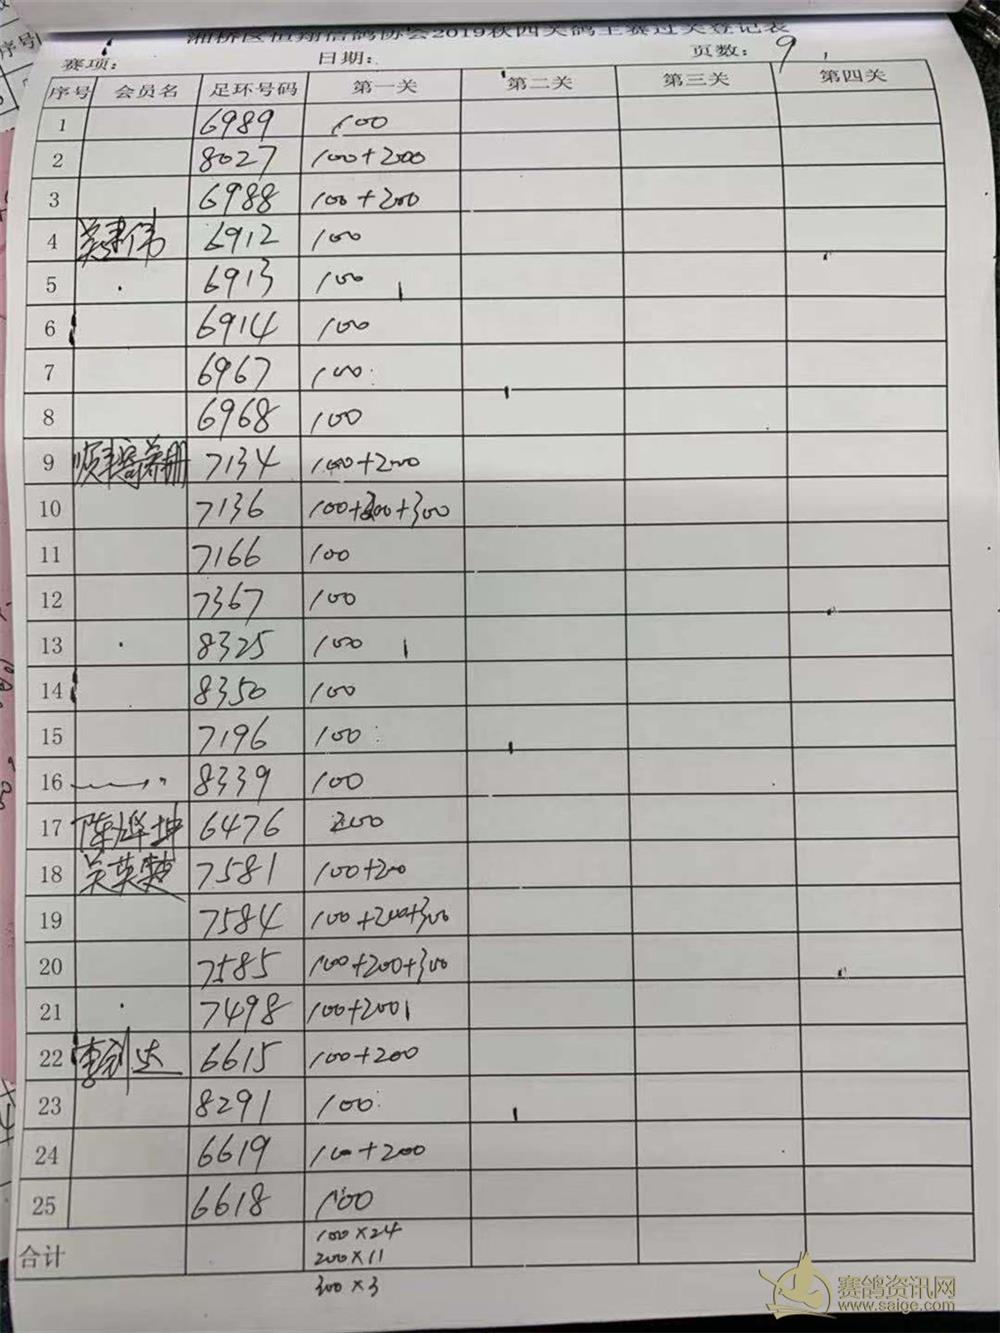 湘桥区恒翔信鸽协会2019秋四关鸽王赛过关登记表
序号
赛项: 日期: 页数: 9
序号 会员名 足环号码 第一关 第二关 第三关 第四关
1 6989 100
2 8027 100+200
3 6988 100+200
4 吴建伟 6912 100
5 6913 100
6 6914 100
7 6967 100
8 6968 100
9 7134 100+200
10 7136 100+200+300
11 7166 100
12 7367 100
13 8325 100
14 8350 100
15 7196 100
16 8339 100
17 陈烨坤 6476 200
18 7581 100+200
19 7584 100+200+300
20 7585 100+200+300
21 7498 100+200
22 6615 100+200
23 8291 100
24 6619 100+200
25 6618 100
合计 100×24
200×11
300×3
赛鸽资讯网
www.saige.com